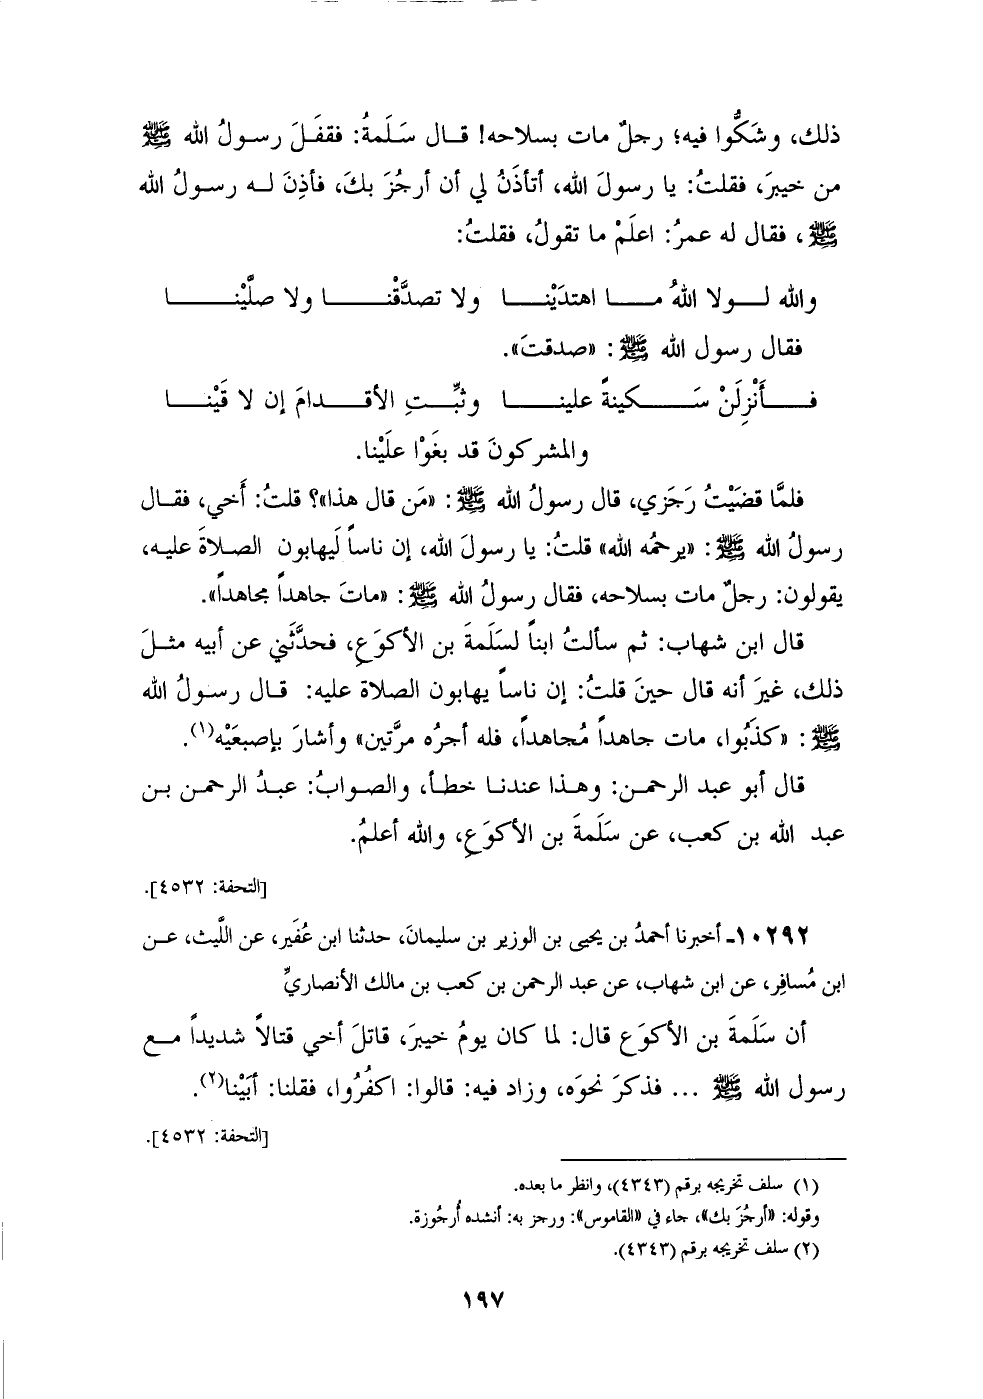 ذلك، وشَكُّوا فيه؛ رجلٌ مات بسلاحه! قال سَلَمةُ: فقفَلَ رسولُ الله ﷺ
من خيبرَ، فقلتُ: يا رسولَ الله، أتأذَنُ لي أن أرجُزَ بكَ، فأذِنَ له رسولُ الله
ﷺ، فقال له عمرُ: اعلَمْ ما تقولُ، فقلتُ:
والله لولا اللهُ ما اهتدَيْنا ولا تصدَّقْنا ولا صلَّيْنا
فقال رسول الله ﷺ: «صدقتَ».
فأَنْزِلَنْ سَكينةً علينا وثبِّتِ الأقدامَ إن لا قَيْنا
والمشركونَ قد بغَوْا علَيْنا.
فلمَّا قضَيْتُ رَجَزي، قال رسولُ الله ﷺ: «مَن قال هذا»؟ قلتُ: أَخي، فقال
رسولُ الله ﷺ: «يرحمُه الله» قلتُ: يا رسولَ الله، إن ناساً لَيهابون الصلاةَ عليه،
يقولون: رجلٌ مات بسلاحه، فقال رسولُ الله ﷺ: «ماتَ جاهداً مجاهداً».
قال ابن شهاب: ثم سألتُ ابناً لسَلَمةَ بن الأكوَعِ، فحدَّثَني عن أبيه مثلَ
ذلك، غيرَ أنه قال حينَ قلتُ: إن ناساً يهابون الصلاة عليه: قال رسولُ الله
ﷺ: «كذَبُوا، مات جاهداً مُجاهداً، فله أجرُه مرَّتين» وأشارَ بإصبعَيْه(١).
قال أبو عبد الرحمن: وهذا عندنا خطأ، والصوابُ: عبدُ الرحمن بن
عبد الله بن كعب، عن سَلَمةَ بن الأكوَعِ، والله أعلمُ.
[التحفة: ٤٥٣٢].
١٠٢٩٢ـ أخبرنا أحمدُ بن يحيى بن الوزير بن سليمانَ، حدثنا ابن عُفَير، عن اللَّيث، عن
ابن مُسافِر، عن ابن شهاب، عن عبد الرحمن بن كعب بن مالك الأنصاريِّ
أن سَلَمةَ بن الأكوَع قال: لما كان يومُ خيبرَ، قاتلَ أخي قتالاً شديداً مع
رسول الله ﷺ ... فذكرَ نحوَه، وزاد فيه: قالوا: اكفُرُوا، فقلنا: أبَيْنا(٢).
[التحفة: ٤٥٣٢].
(١) سلف تخريجه برقم (٤٣٤٣)، وانظر ما بعده.
وقوله: «أرجُزَ بك»، جاء في «القاموس»: ورجز به: أنشده أُرجُوزة.
(٢) سلف تخريجه برقم (٤٣٤٣).
١٩٧